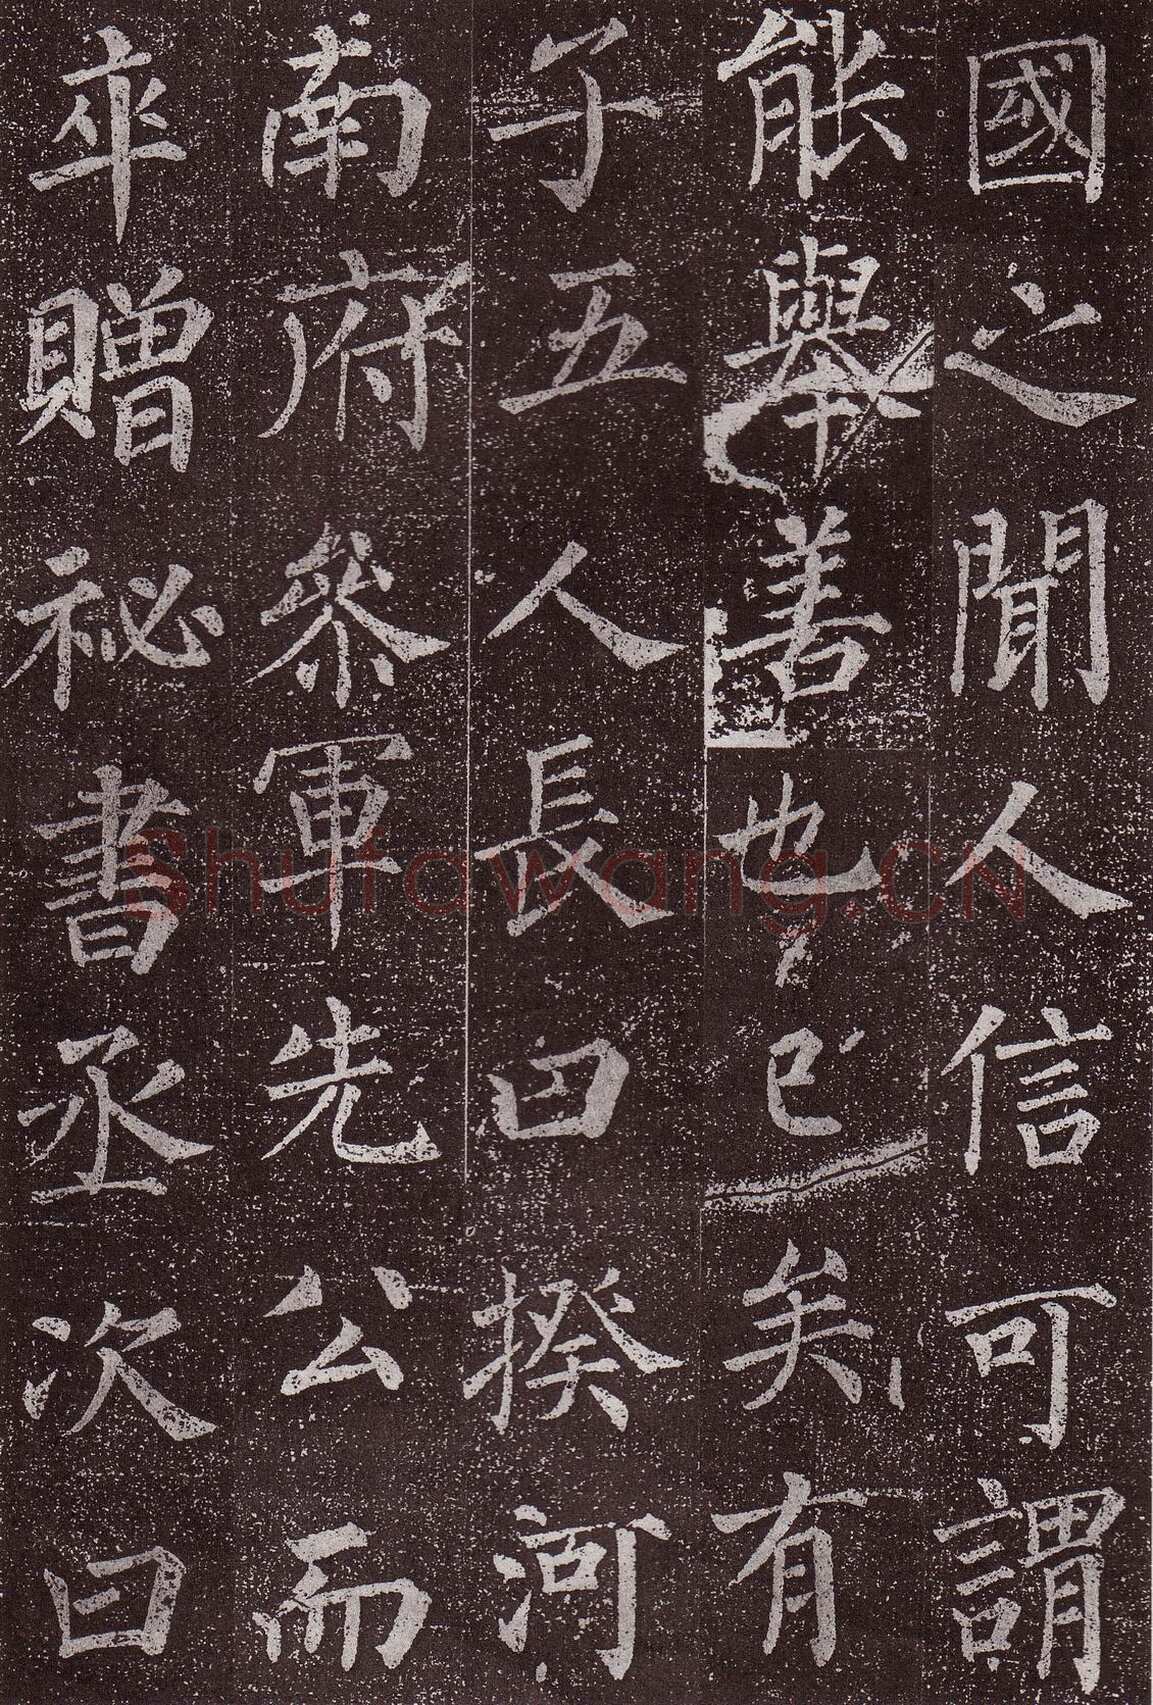 國之聞人信可謂
能舉善也已矣有
子五人長曰揆河
南府叅軍先公而
卒贈祕書丞次曰
Shufawang.CN